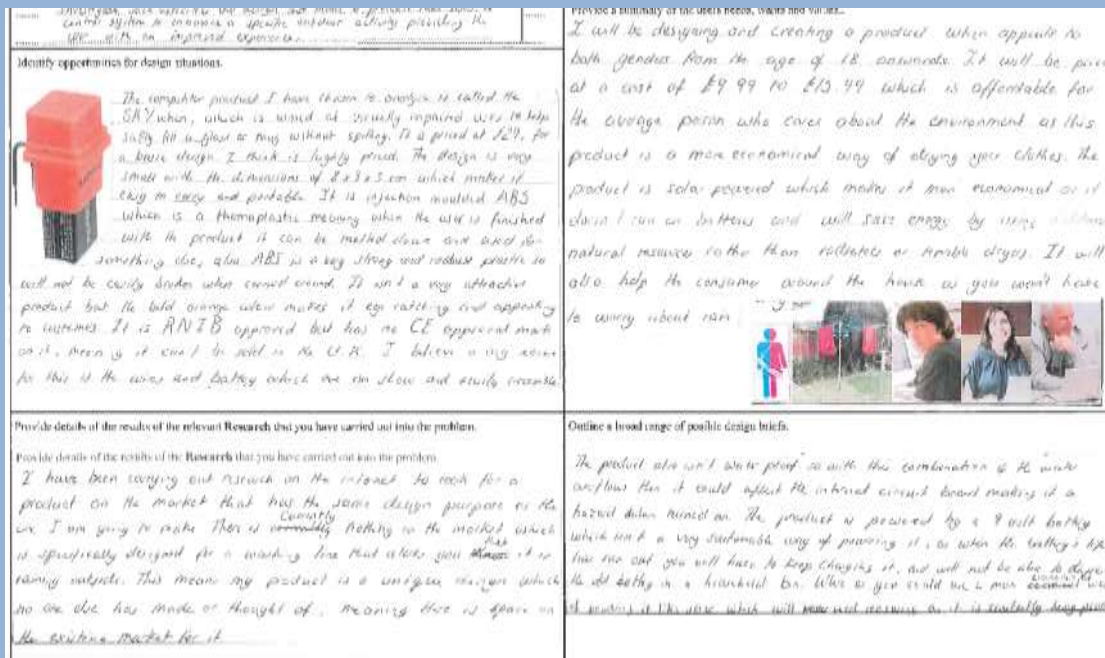 control system to enhance a specific outdoor activity providing the
user with an improved experience.
Identify opportunities for design situations.
The computer product I have chosen to analyse is called the
which is aimed at visually impaired users to help
safely fill a glass or mug without spilling. It is priced at £27, for
a basic design I think is highly priced. The design is very
small with the dimensions of 8 x 3 x 3 cm which makes it
easy to carry and portable. It is injection moulded ABS
which is a thermoplastic meaning when the user is finished
with the product it can be melted down and used for
something else, also ABS is a very strong and robust plastic so
will not be easily broken when carried around. It isn't a very attractive
product but the bold orange colour makes it eye catching and appealing
to customers. It is RNIB approved but has no CE approval mark
on it, meaning it can't be sold in the U.K. I believe a
for this is the wires and battery which are on show and easily
Provide details of the results of the relevant Research that you have carried out into the problem.
Provide details of the results of the Research that you have carried out into the problem.
I have been carrying out research on the internet to look for a
product on the market that has the same design purpose as the
one I am going to make. There is Currently nothing on the market which
is specifically designed for a washing line that alerts you that it is
raining outside. This means my product is a unique design which
no one else has made or thought of, meaning there is space on
the existing market for it
Provide a summary of the users needs, wants and values..
I will be designing and creating a product when appeals to
both genders from the age of 18 onwards. It will be priced
at a cost of £9.99 to £13.49 which is affordable for
the average person who cares about the environment as this
product is a more economical way of drying your clothes. The
product is solar powered which makes it more economical as it
doesn't run on batteries and will save energy by using
natural resources rather than radiators or tumble dryers. It will
also help the consumer around the house as you won't have
to worry about rain
Outline a broad range of possible design briefs.
The product also isn't water proof so with this combination if the water
overflows then it could affect the internal circuit board making it a
hazard when turned on. The product is powered by a 9 volt battery
which isn't a very sustainable way of powering it, as when the battery's life
has run out you will have to keep changing it, and will not be able to dispose
the old battery in a household bin. you could use a more
of powering it like solar which will as it is constantly being